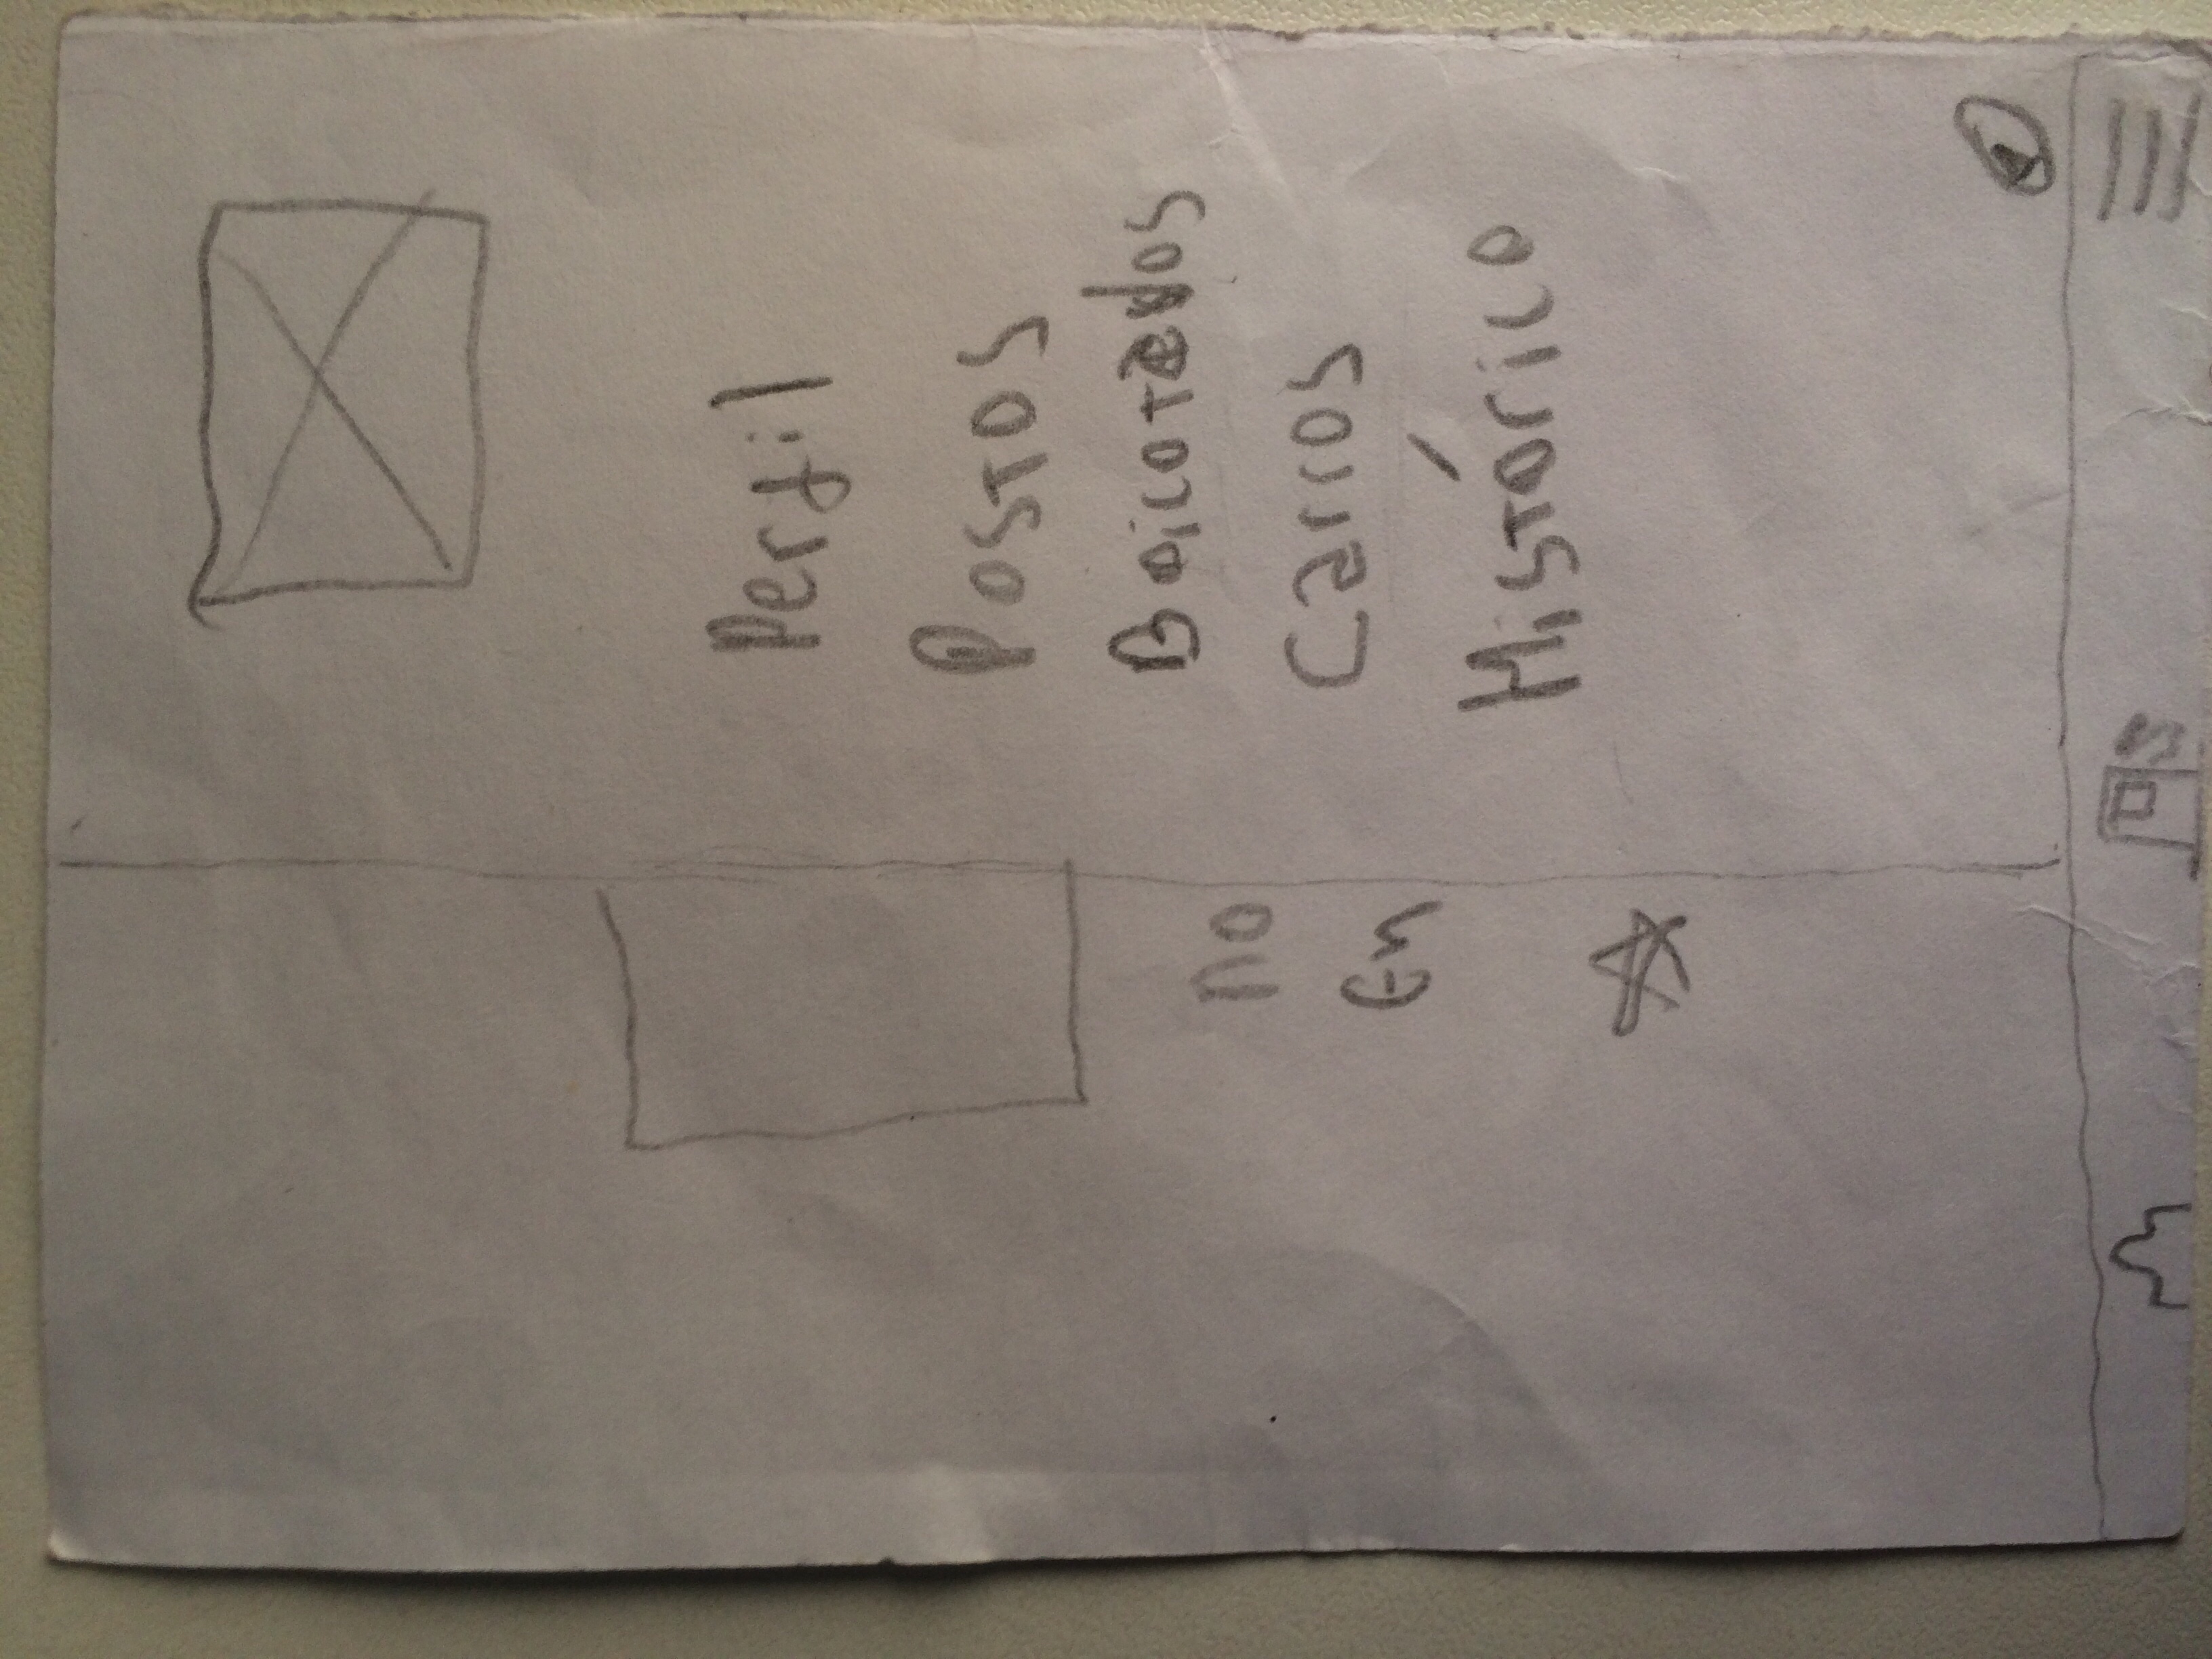 Perfil
Postos
Boicotados
no
Carros
En
Histórico